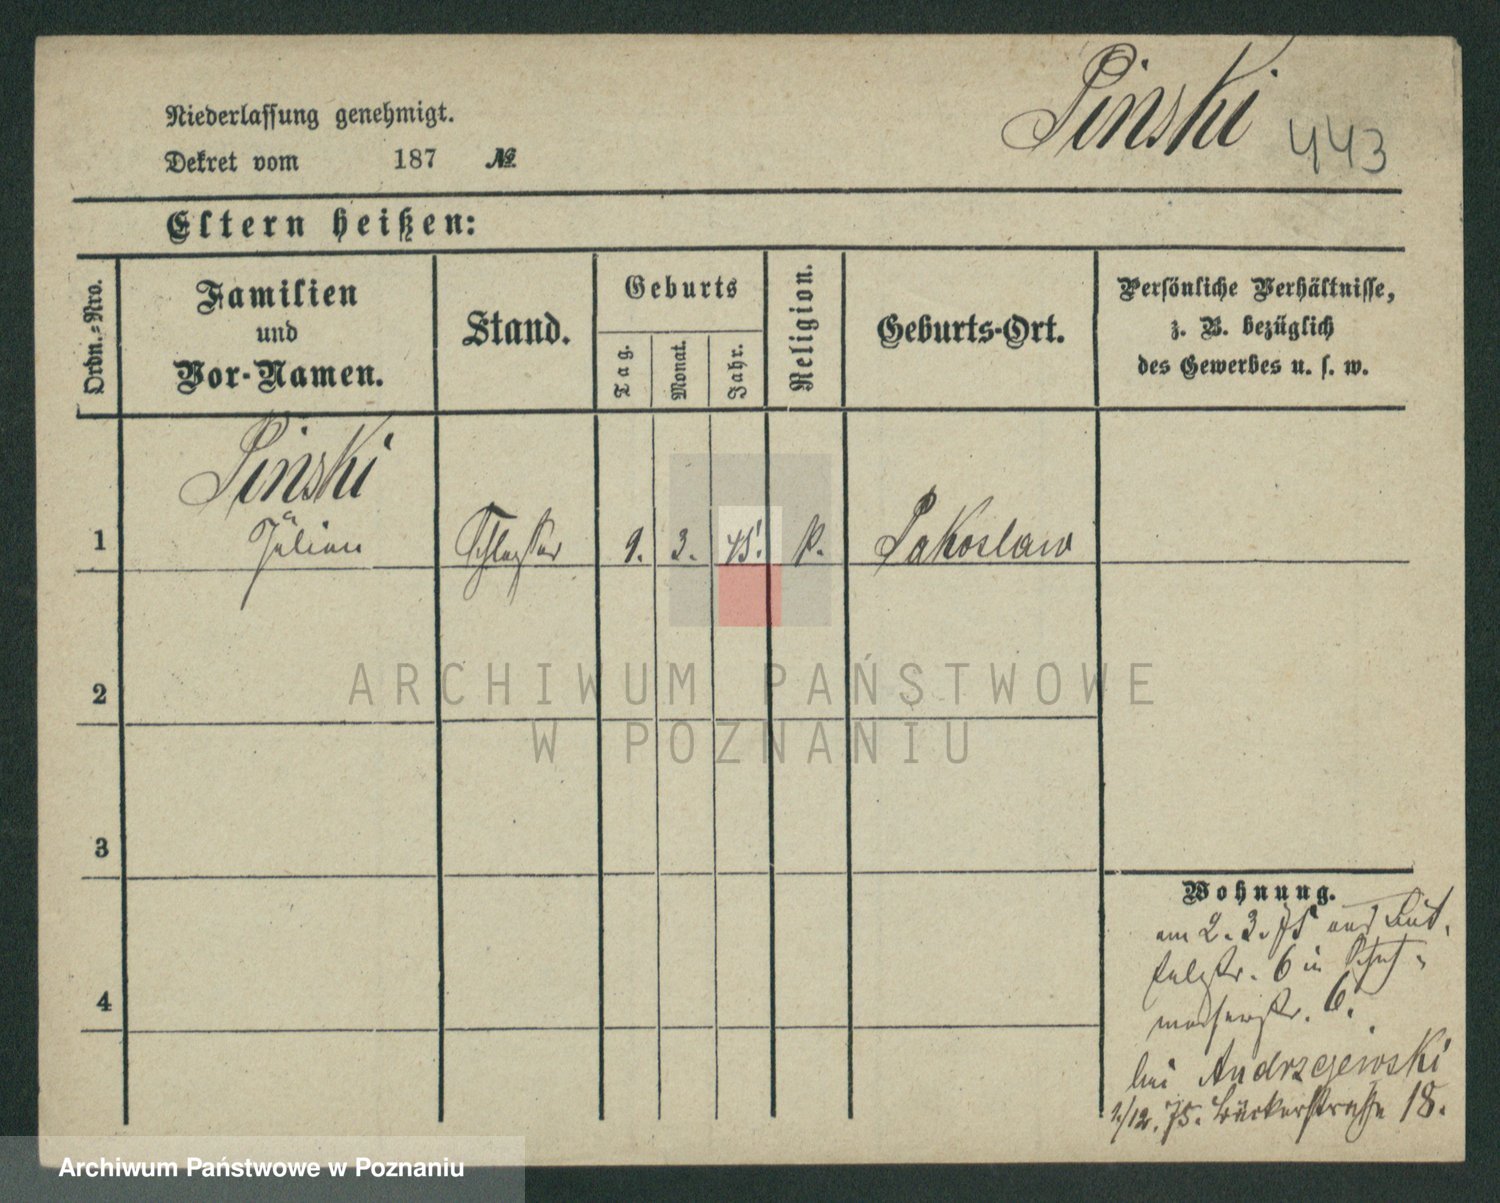 Pinski 443
Niederlassung genehmigt.
Dekret vom 187 №
Eltern heißen:
Ordn.-Nro.
Familien
und
Vor-Namen.
Stand.
Geburts
Tag.
Monat.
Jahr.
Religion.
Geburts-Ort.
Persönliche Verhältnisse,
z. B. bezüglich
des Gewerbes u. s. w.
Pinski
1 Julian 3. k. Pakoslaw
2
3
4
Wohnung.
am 2. 3. 75 aus
6 in Schuh-
macherstr. 6.
bei Andrzejewski
1/12. 75. Bäckerstraße 18.
ARCHIWUM PAŃSTWOWE
W POZNANIU
Archiwum Państwowe w Poznaniu